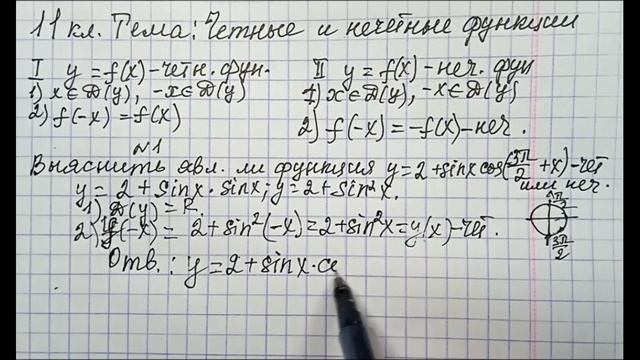 11 кл. Тема: Четные и нечётные функции
I y = f(x) - четн. фун.
1) x ∈ D(y), -x ∈ D(y)
2) f(-x) = f(x)
II y = f(x) - неч. фун
1) x ∈ D(y), -x ∈ D(y)
2) f(-x) = -f(x) - неч.
№1
Выяснить явл. ли функция y = 2 + sinx cos(3π/2 + x) - чет
или неч.
y = 2 + sinx · sinx; y = 2 + sin²x.
1) D(y) = R.
2) y(-x) = 2 + sin²(-x) = 2 + sin²x = y(x) - чёт.
3π/2
Отв.: y = 2 + sinx · c